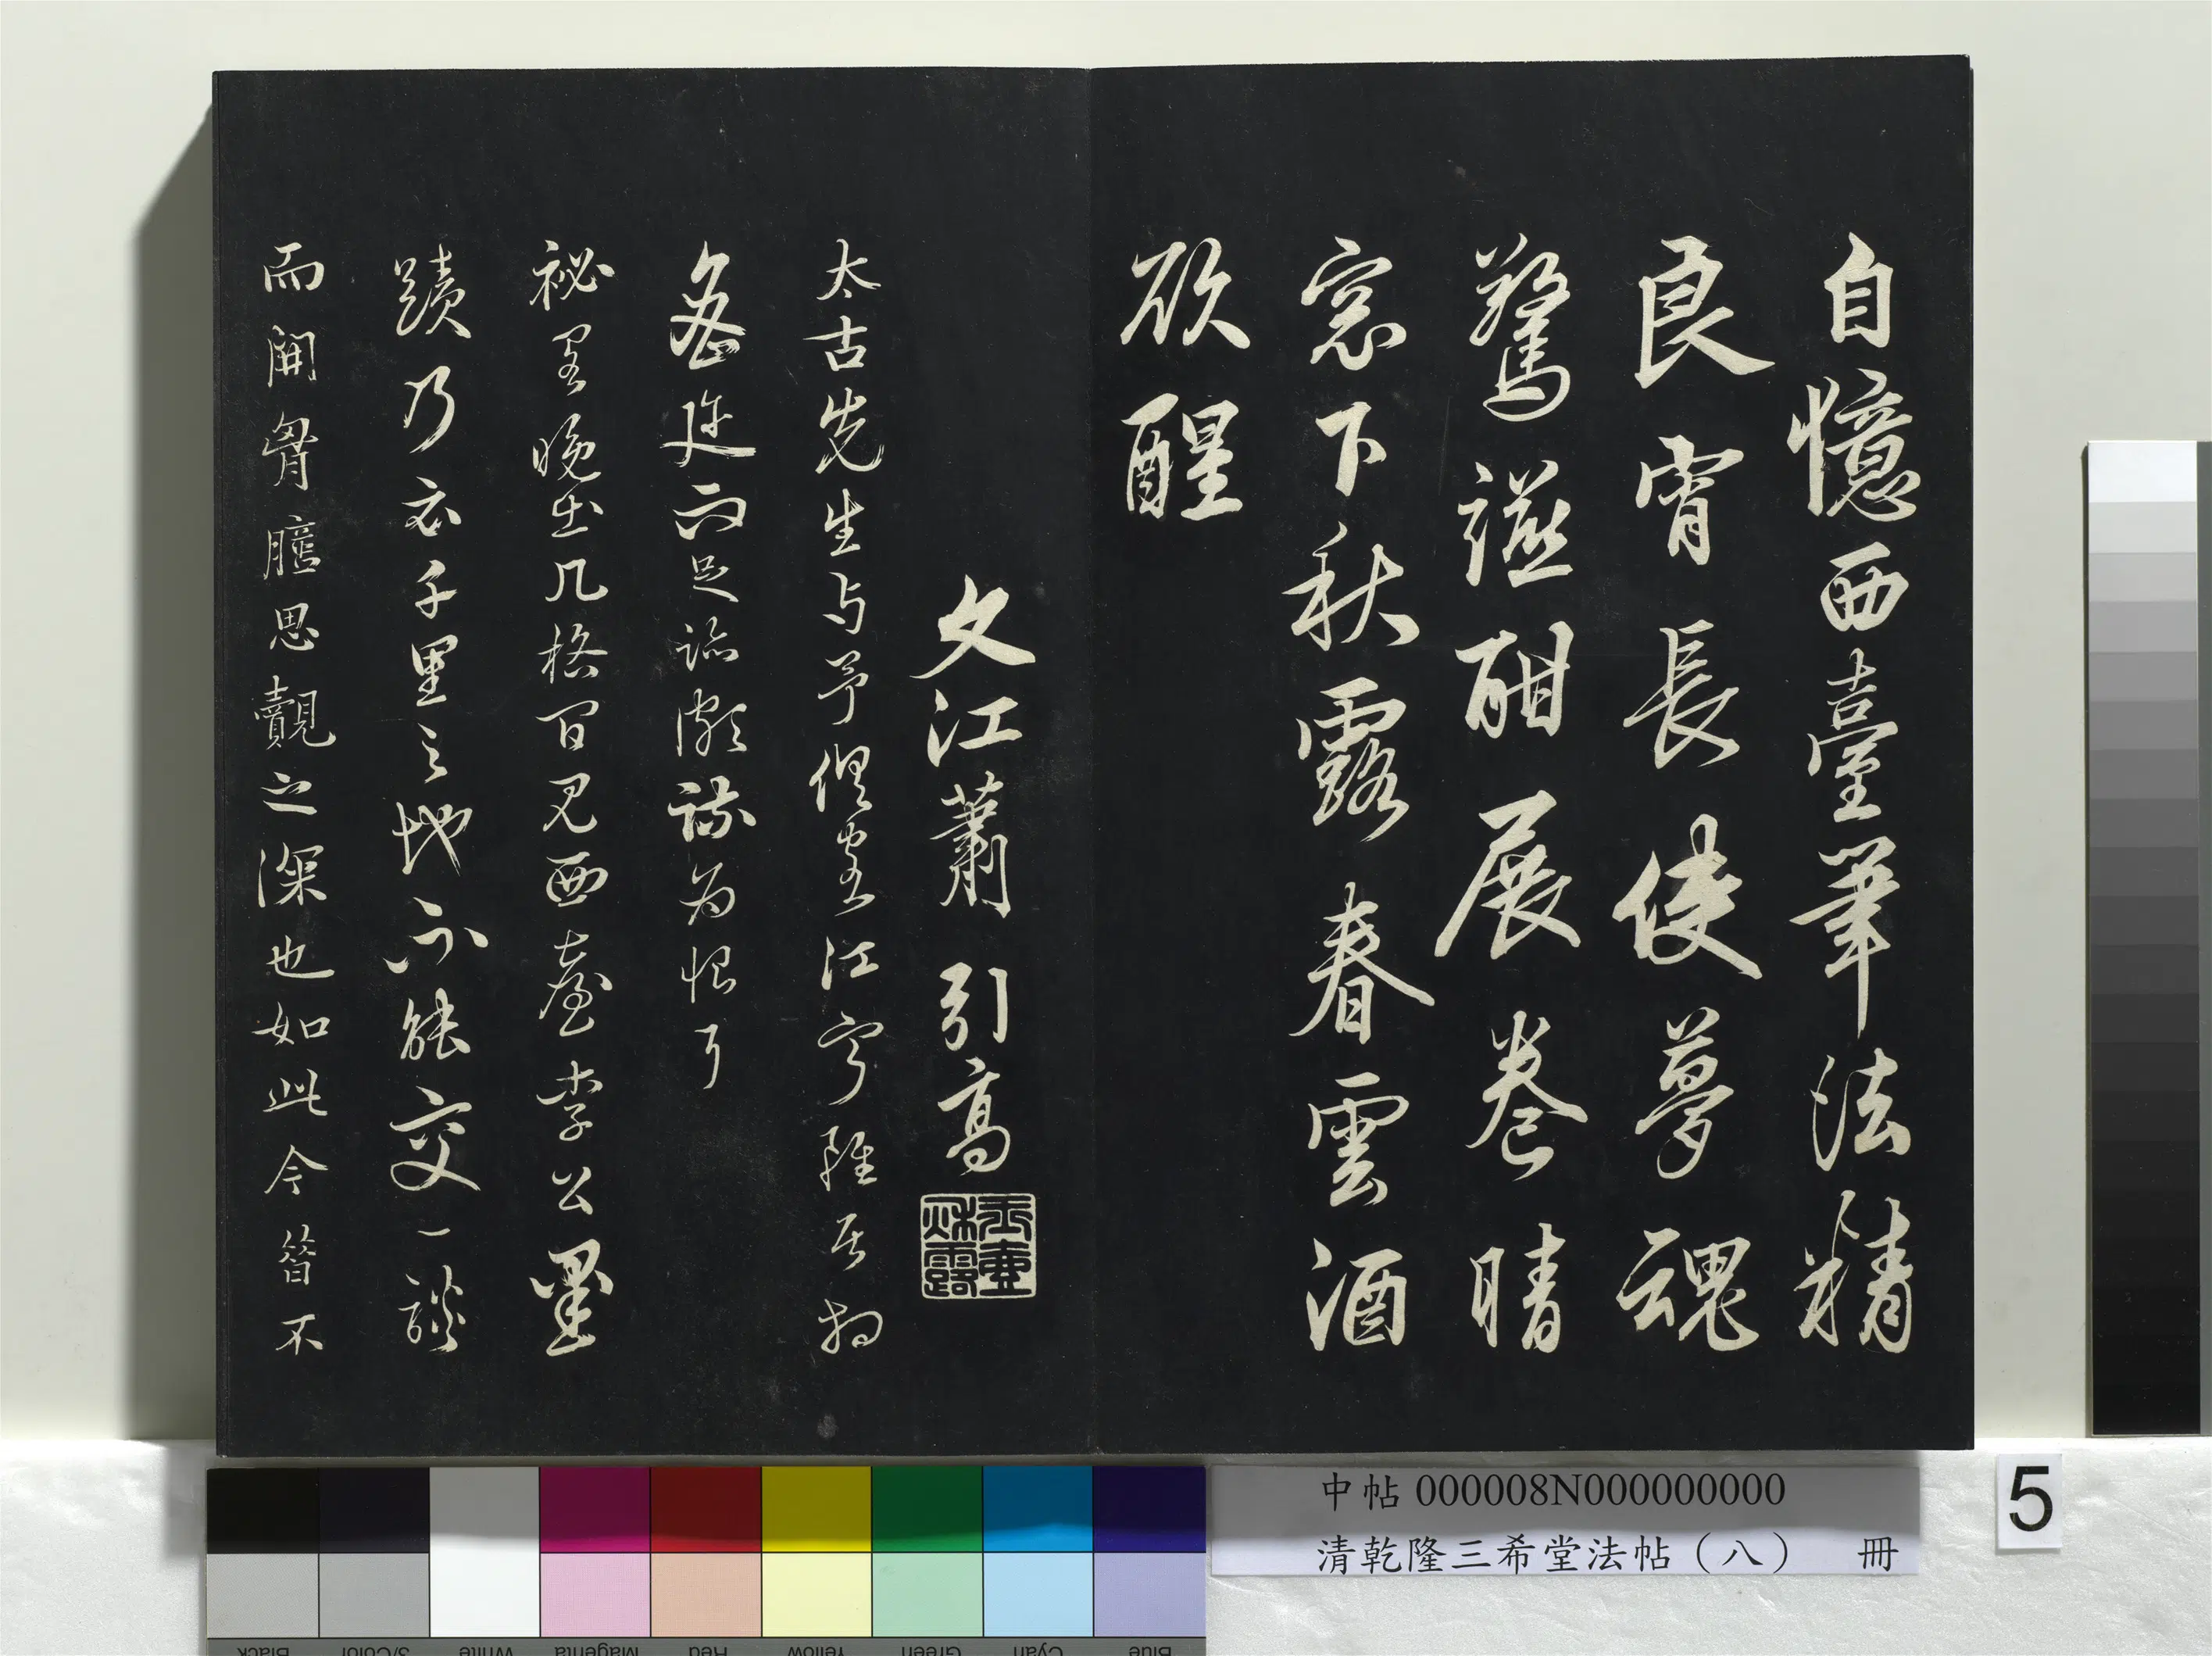 自憶西臺筆法精
良宵長使夢魂
驚謳酣展卷晴
窓下秋露春雲酒
欲醒
文江蕭引高
玉壺秋露
太古先生与予俱客江寧雖居相
邇而足迹闊疎為恨耳
祕閣晚出几格間見西臺李公墨
蹟乃去千里之地不能交一談
而開胷臆思覿之深也如此今簪不
中帖 000008N000000000
清乾隆三希堂法帖（八） 冊
5
Black
3/Color
White
Magenta
Red
Yellow
Green
Cyan
Blue